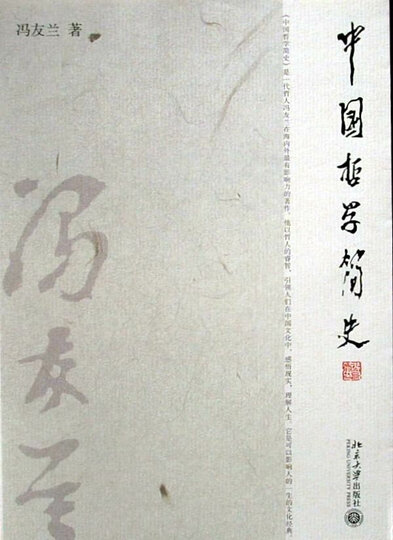 冯友兰 著
中国哲学简史
《中国哲学简史》是一代哲人冯友兰在海内外最有影响力的著作，他以哲人的睿智，引领人们在中国文化中，感悟现实，理解人生。它是可以影响人的一生的文化经典。
冯友兰
北京大学出版社
PEKING UNIVERSITY PRESS